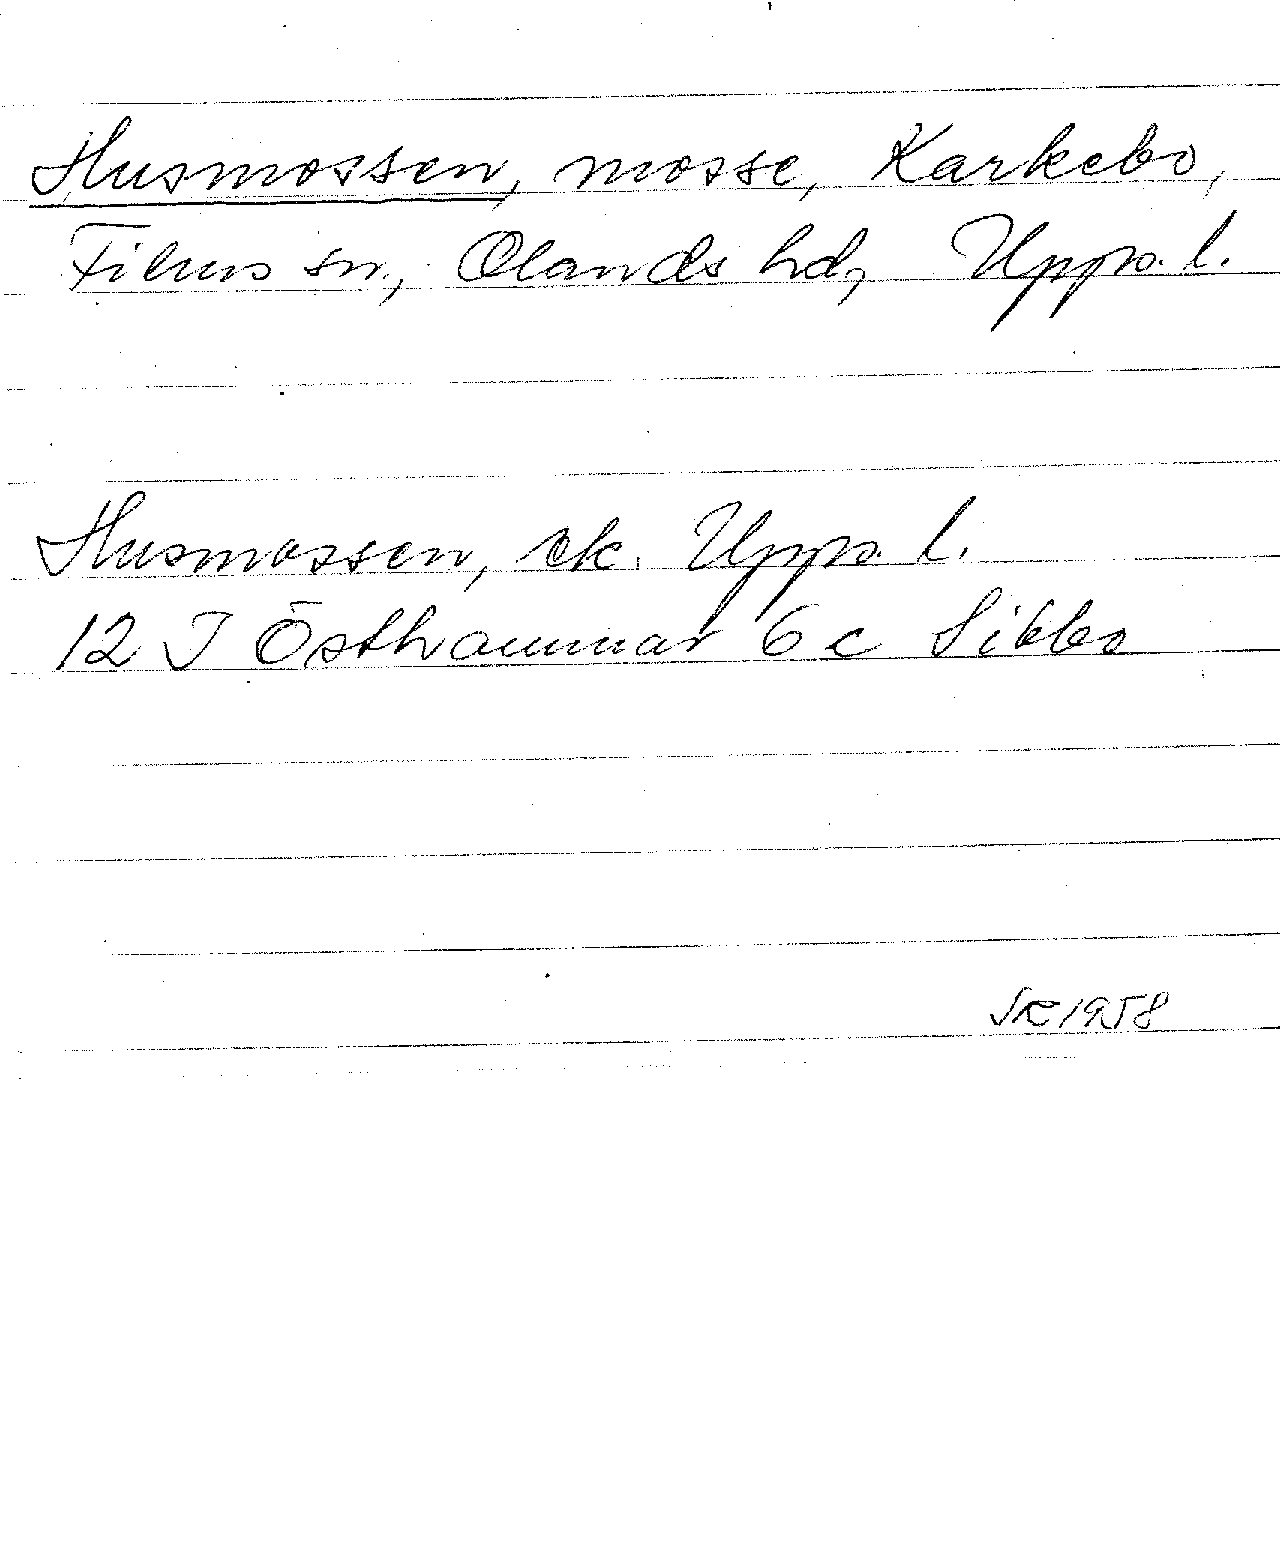 Husmossen, mosse, Karkebo,
Films sn, Olands hd, Upps. l.
Husmossen, ek. Upps. l.
12 I Östhammar 6 c Sibbo
SK 1958